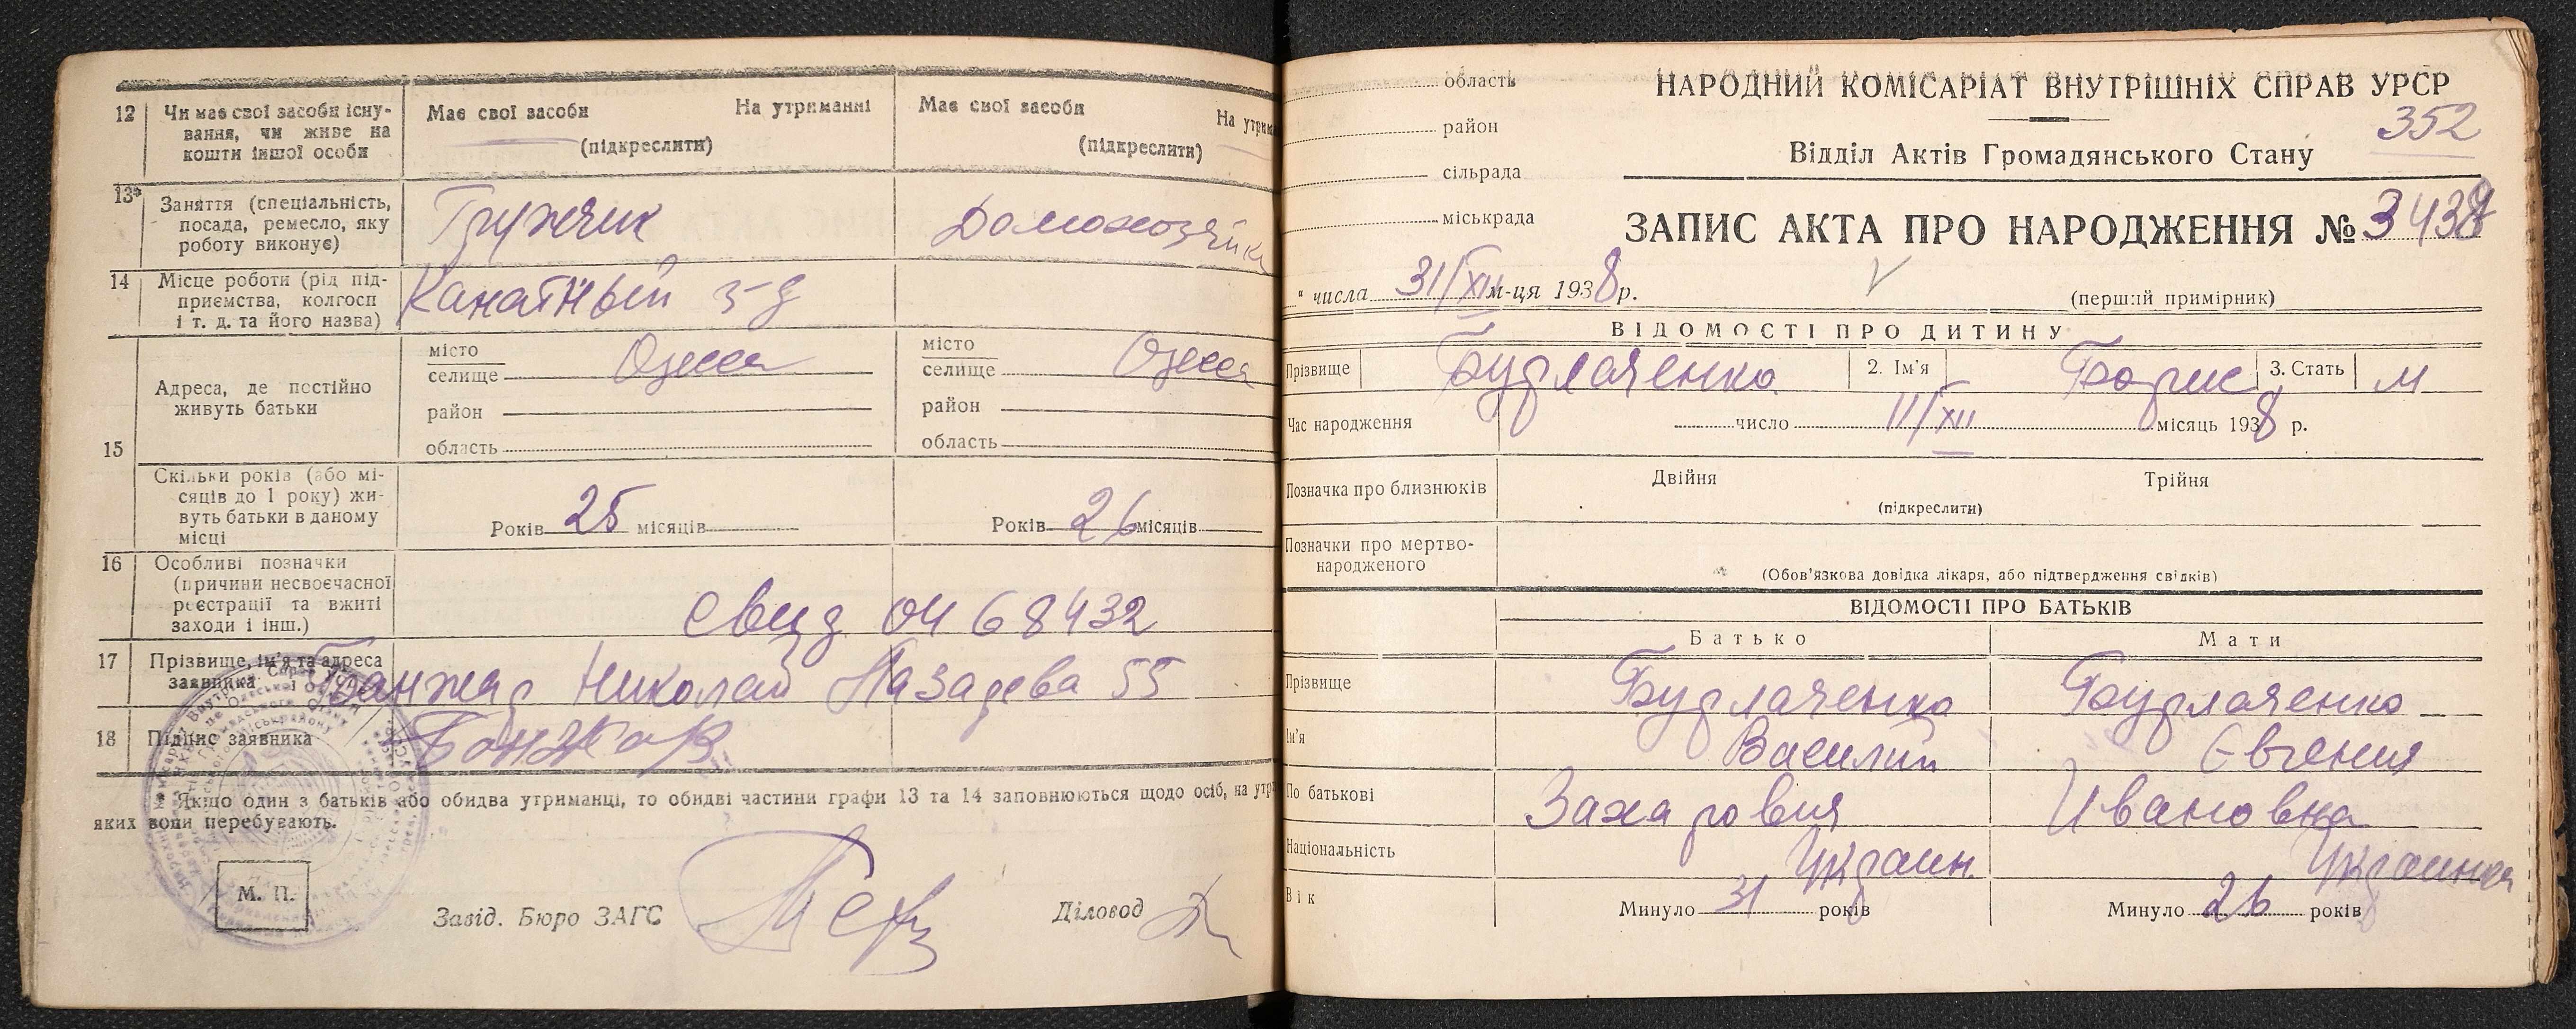 12 Чи має свої засоби існу-
вання, чи живе на
кошти іншої особи
Має свої засоби На утриманні
(підкреслити)
Має свої засоби На утрим
(підкреслити)
13* Заняття (спеціальність,
посада, ремесло, яку
роботу виконує)
Грузчик
Домохозяйка
14 Місце роботи (рід під-
приємства, колгосп
і т. д. та його назва)
Канатный з-д
15 Адреса, де постійно
живуть батьки
місто
селище Одесса
район
область
місто
селище Одесса
район
область
Скільки років (або мі-
сяців до 1 року) жи-
вуть батьки в даному
місці
Років 25 місяців
Років 26 місяців
16 Особливі позначки
(причини несвоєчасної
реєстрації та вжиті
заходи і інш.)
Свид 04 68432
17 Прізвище, ім'я та адреса
заявника
Банжар Николай Лазарева 55
18 Підпис заявника
Банжар
* Якщо один з батьків або обидва утриманці, то обидві частини графи 13 та 14 заповнюються щодо осіб, на утр
яких вони перебувають.
М. П.
Завід. Бюро ЗАГС
Діловод
область
район
сільрада
міськрада
НАРОДНИЙ КОМІСАРІАТ ВНУТРІШНІХ СПРАВ УРСР
352
Відділ Актів Громадянського Стану
ЗАПИС АКТА ПРО НАРОДЖЕННЯ № 3438
" числа 31/XII м-ця 1938 р.
(перший примірник)
ВІДОМОСТІ ПРО ДИТИНУ
Прізвище Бурлаченко 2. Ім'я Борис 3. Стать м
Час народження число 11/XII місяць 1938 р.
Позначка про близнюків Двійня Трійня
(підкреслити)
Позначки про мертво-
народженого
(Обов'язкова довідка лікаря, або підтвердження свідків)
ВІДОМОСТІ ПРО БАТЬКІВ
Батько Мати
Прізвище Бурлаченко Бурлаченко
Ім'я Василий Євгения
По батькові Захарович Ивановна
Національність Украин. Украинка
Вік Минуло 31 років Минуло 26 років